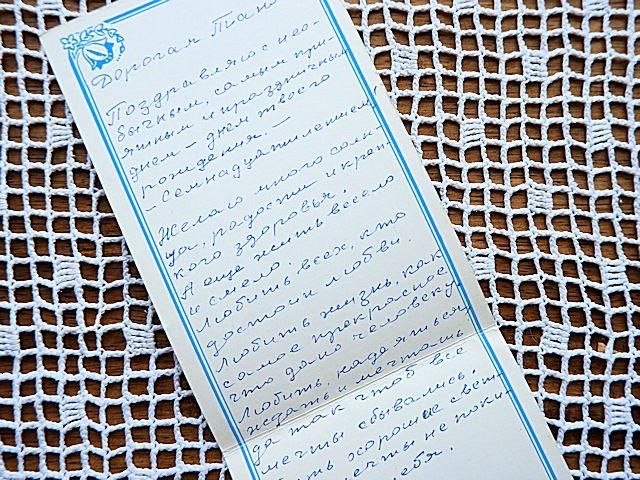 Дорогая Тian
Поздравляю с нео-
бычным, самым при-
ятным и праздничным
днём — днем твоего
рождения. —
- семнадцатилетием!
Желаю много солн-
ца, радости и креп-
кого здоровья.
А еще жить весело
и смело.
Любить всех, кто
достоин любви.
Любить жизнь, как
самое прекрасное,
что дано человеку,
Любить, надеяться,
ждать и мечтать
да так чтоб все
мечты сбывались,
хорошие свет-
мечты не поки-
тебя.